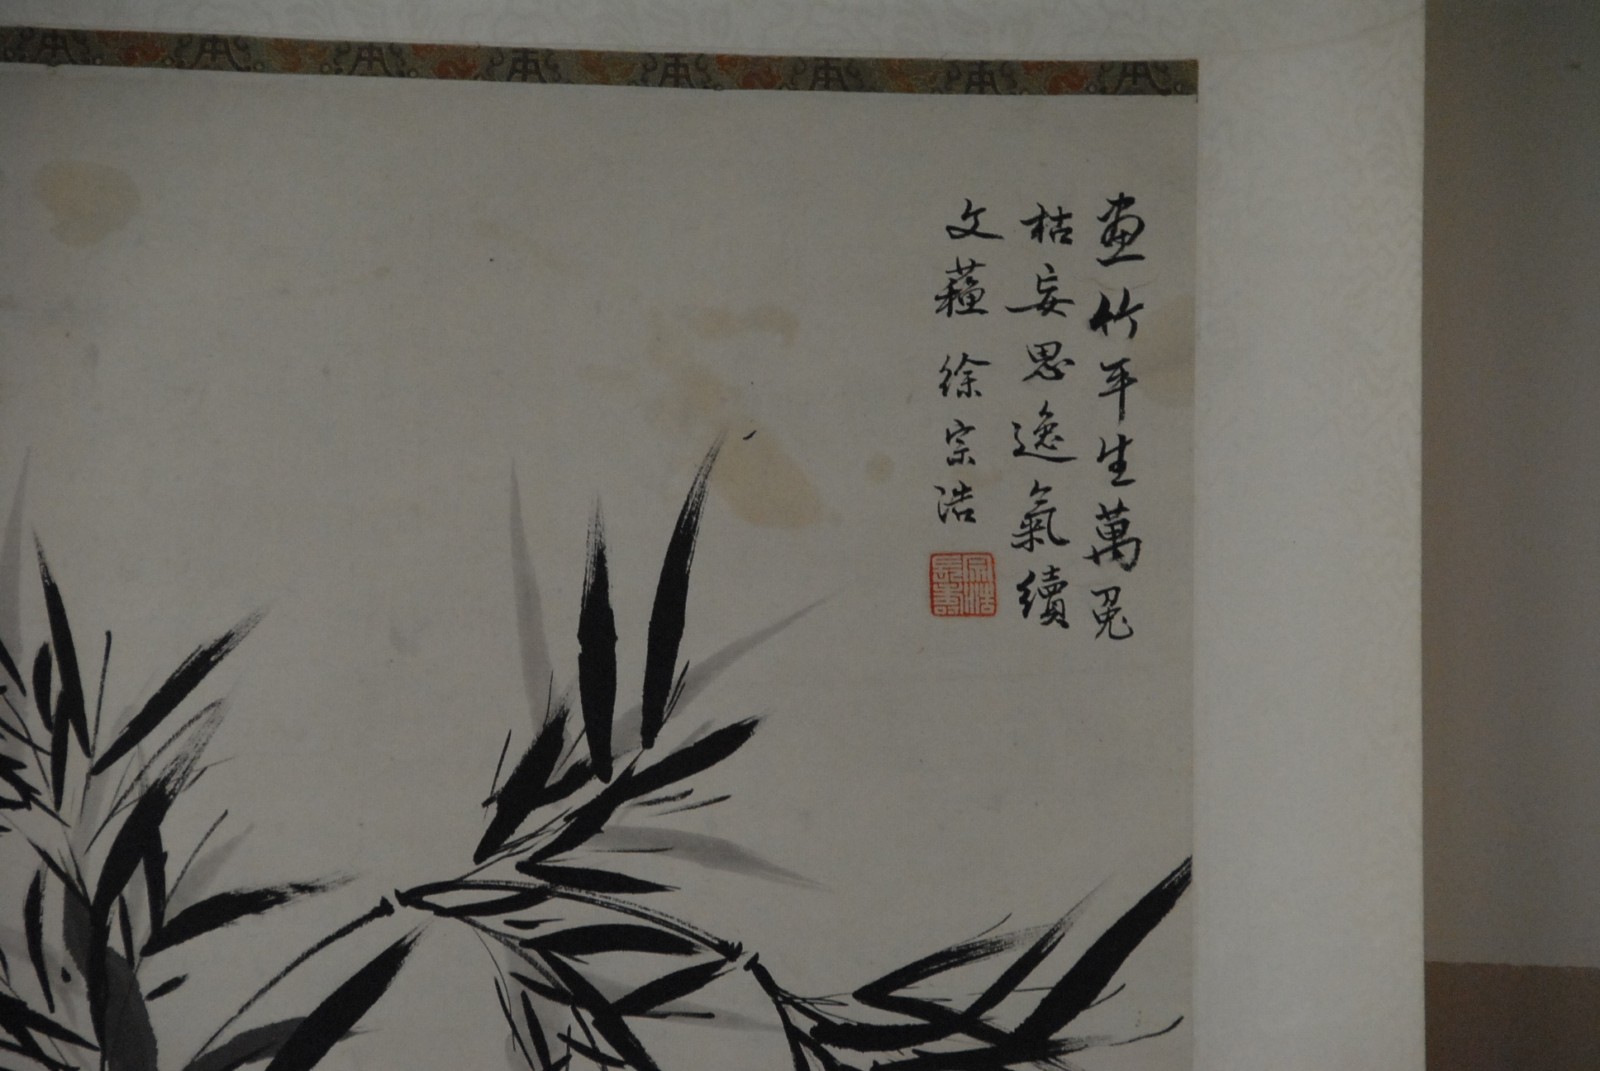 畫竹平生萬兎
枯妄思逸氣續
文蘓 徐宗浩